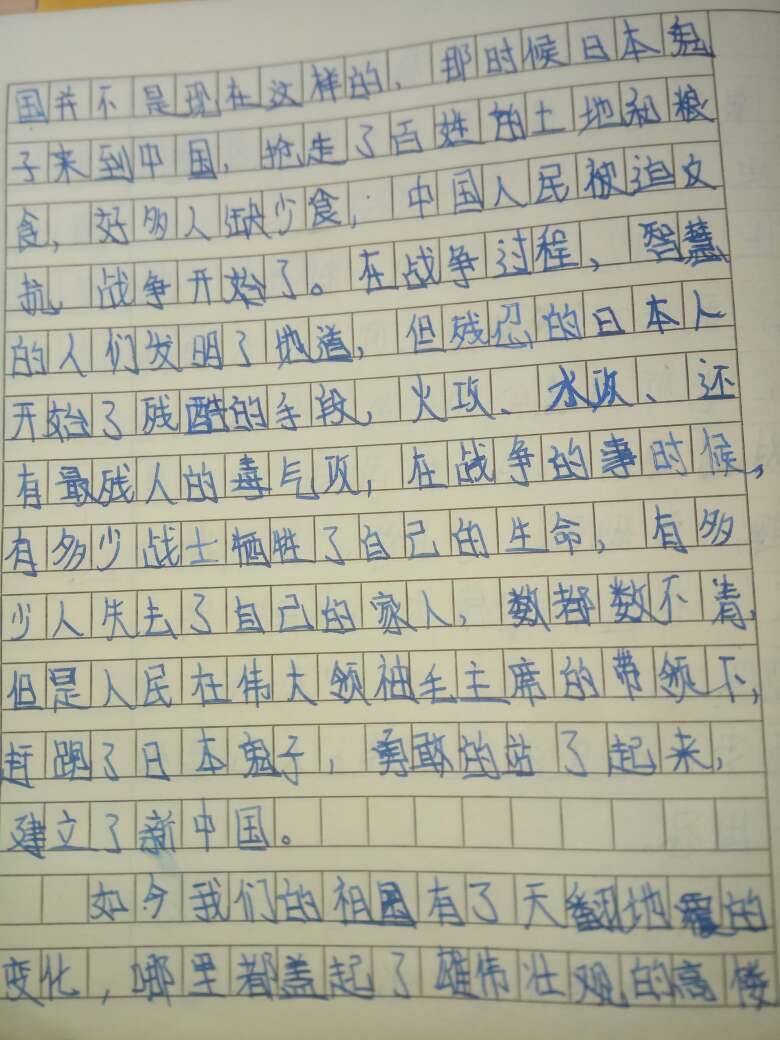 国并不是现在这样的、那时候日本鬼
子来到中国，抢走了百姓的土地和粮
食，好多人缺少食，中国人民被迫反
抗，战争开始了。在战争过程，智慧
的人们发明了地道，但残忍的日本人
开始了残酷的手段，火攻、水攻、还
有最残人的毒气攻，在战争的事时候，
有多少战士牺牲了自己的生命，有多
少人失去了自己的家人，数都数不清，
但是人民在伟大领袖毛主席的带领下，
赶跑了日本鬼子，勇敢的站了起来，
建立了新中国。
如今我们的祖国有了天翻地覆的
变化，哪里都盖起了雄伟壮观的高楼